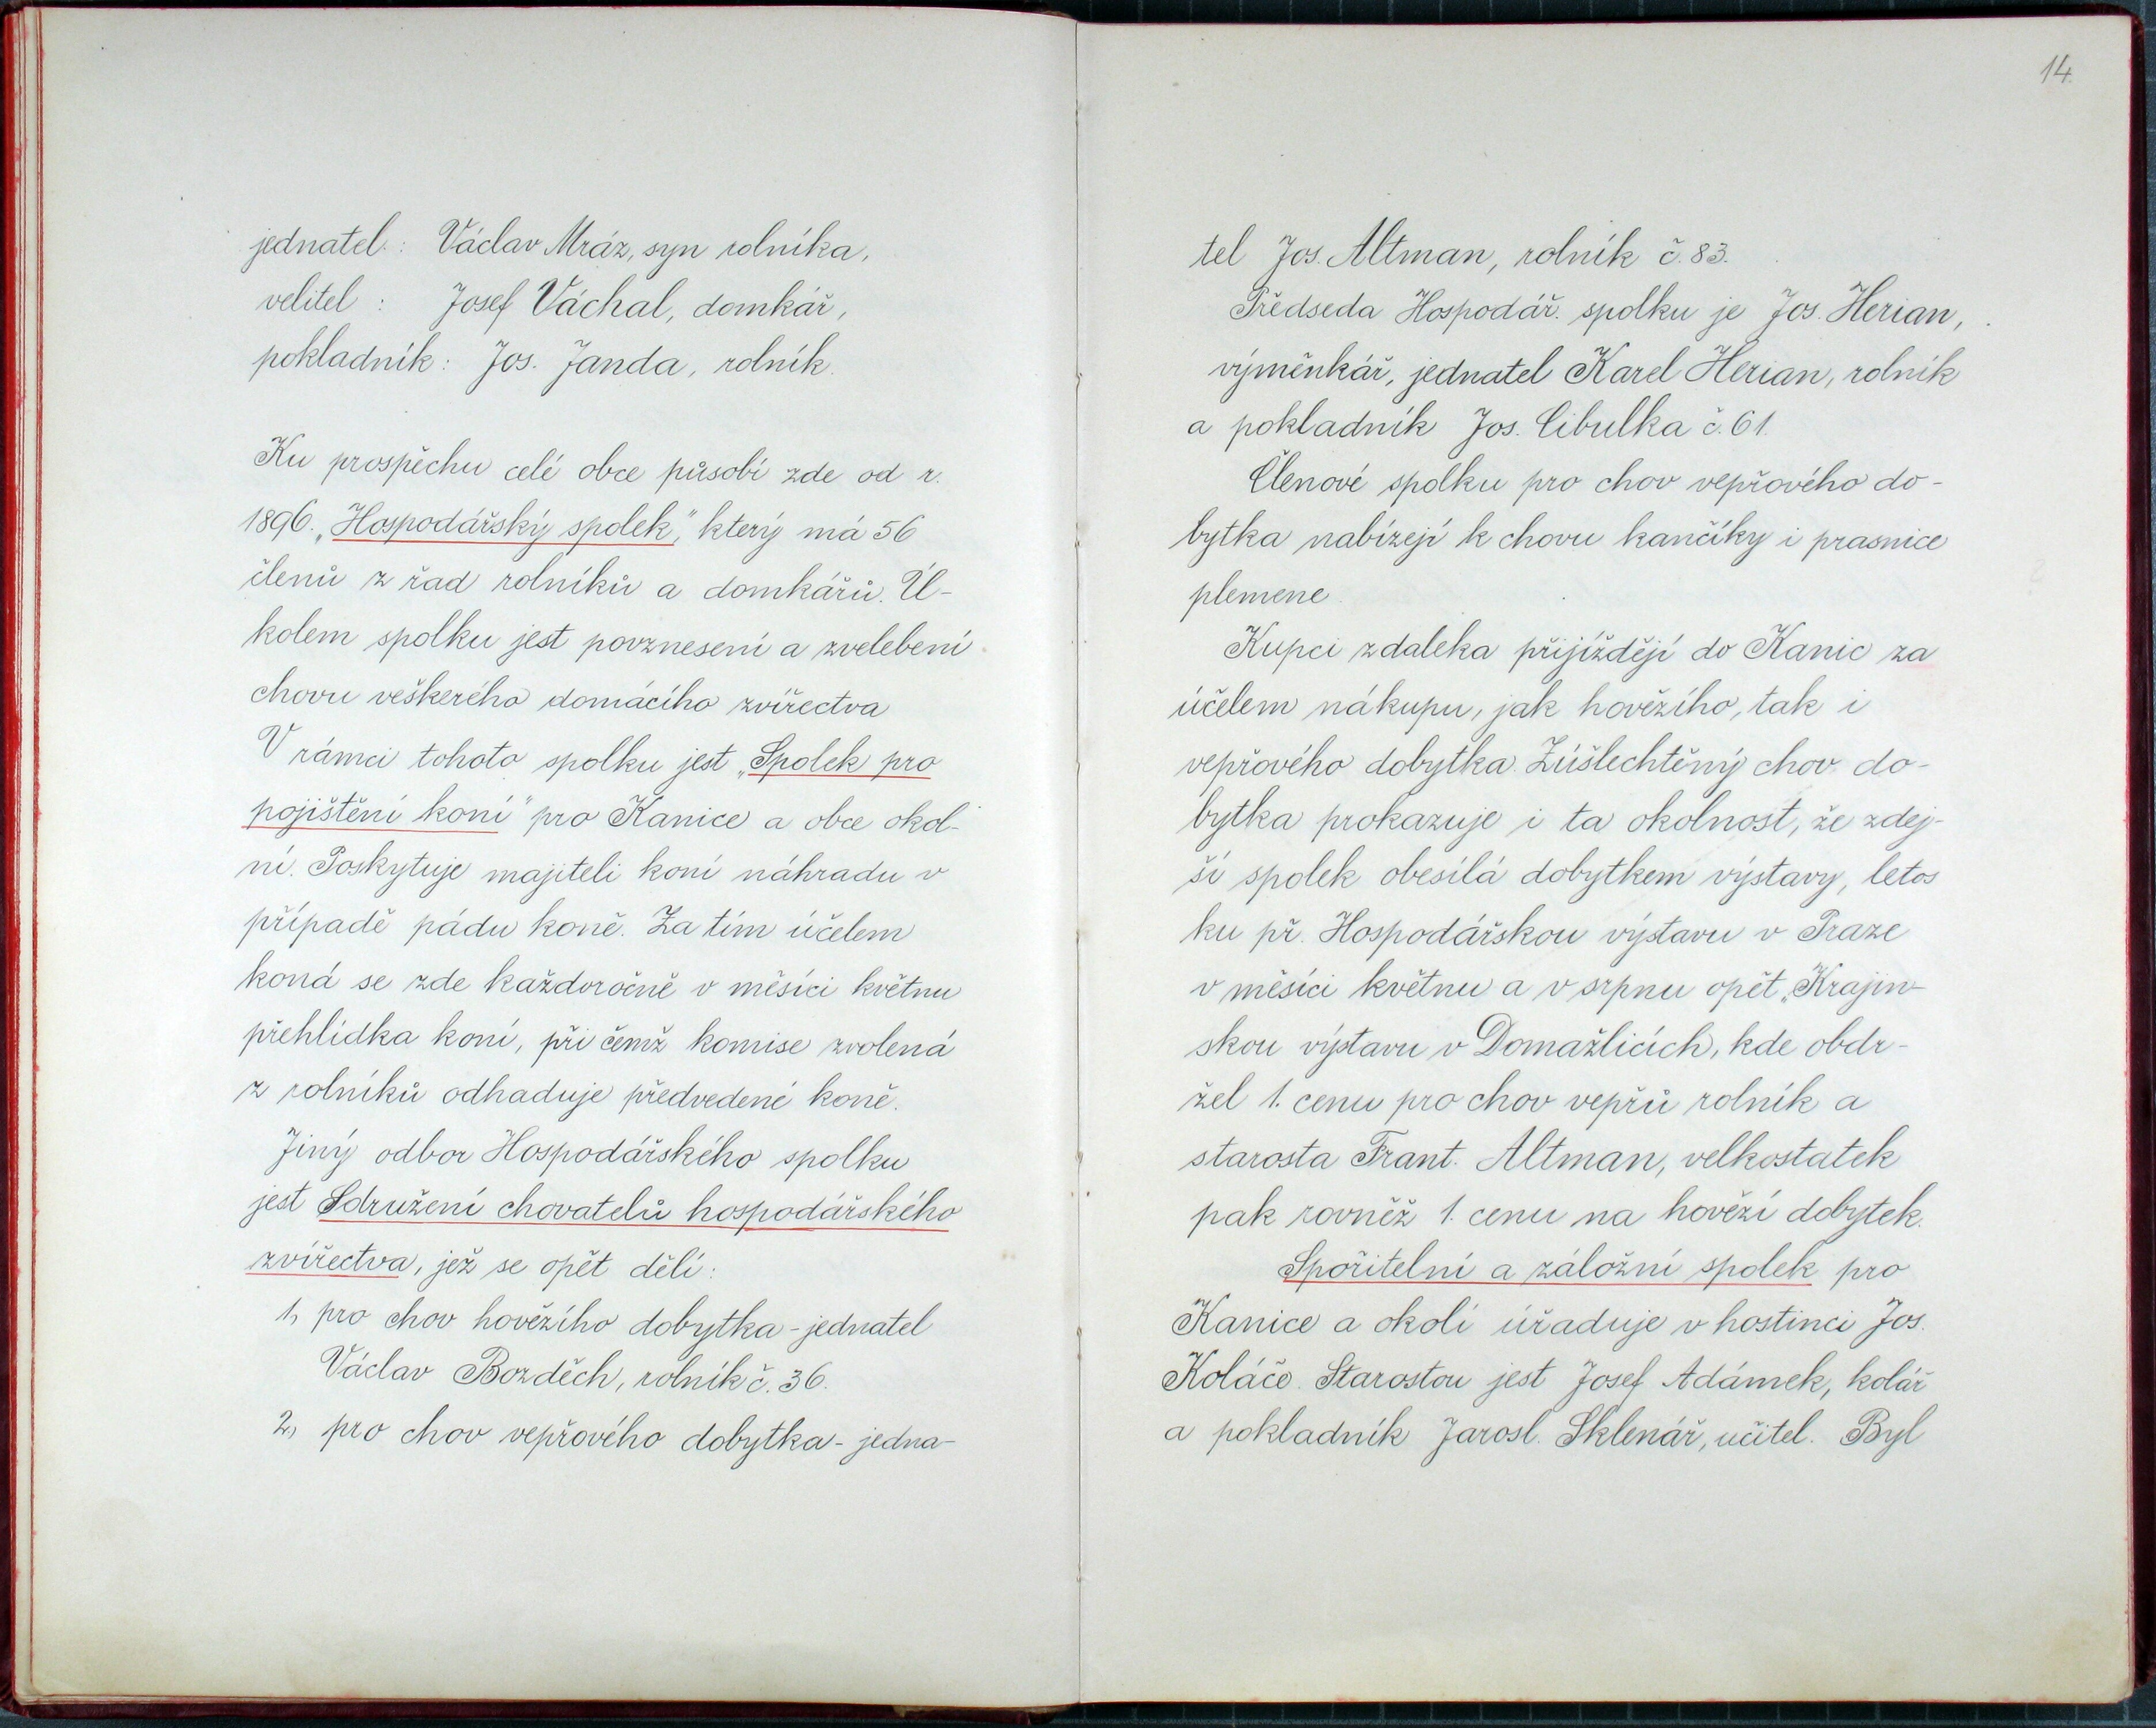 jednatel: Václav Mráz, syn rolníka,
velitel: Josef Váchal, domkář,
pokladník: Jos. Janda, rolník.
Ku prospěchu celé obce působí zde od r.
1896. „Hospodářský spolek," který má 56
členů z řad rolníků a domkářů. Ú-
kolem spolku jest povznesení a zvelebení
chovu veškerého domácího zvířectva
V rámci tohoto spolku jest „Spolek pro
pojištění koní" pro Kanice a obce okol-
ní. Poskytuje majiteli koní náhradu v
případě pádu koně. Za tím účelem
koná se zde každoročně v měsíci květnu
přehlídka koní, při čemž komise zvolená
z rolníků odhaduje předvedené koně.
Jiný odbor Hospodářského spolku
jest Sdružení chovatelů hospodářského
zvířectva, jež se opět dělí:
1, pro chov hovězího dobytka - jednatel
Václav Bozděch, rolník č. 36.
2, pro chov vepřového dobytka - jedna-
14.
tel Jos. Altman, rolník č. 83.
Předseda Hospodář. spolku je Jos. Herian,
výměnkář, jednatel Karel Herian, rolník
a pokladník Jos. Cibulka č. 61.
Členové spolku pro chov vepřového do-
bytka nabízejí k chovu kančíky i prasnice
plemene
Kupci zdaleka přijíždějí do Kanic za
účelem nákupu, jak hovězího, tak i
vepřového dobytka. Zúšlechtěný chov do-
bytka prokazuje i ta okolnost, že zdej-
ší spolek obesílá dobytkem výstavy, letos
ku př. Hospodářskou výstavu v Praze
v měsíci květnu a v srpnu opět „Krajin-
skou výstavu v Domažlicích, kde obdr-
žel 1. cenu pro chov vepřů rolník a
starosta Frant. Altman, velkostatek
pak rovněž 1. cenu na hovězí dobytek.
Spořitelní a záložní spolek pro
Kanice a okolí úřaduje v hostinci Jos.
Koláče. Starostou jest Josef Adámek, kolář
a pokladník Jarosl. Sklenář, učitel. Byl